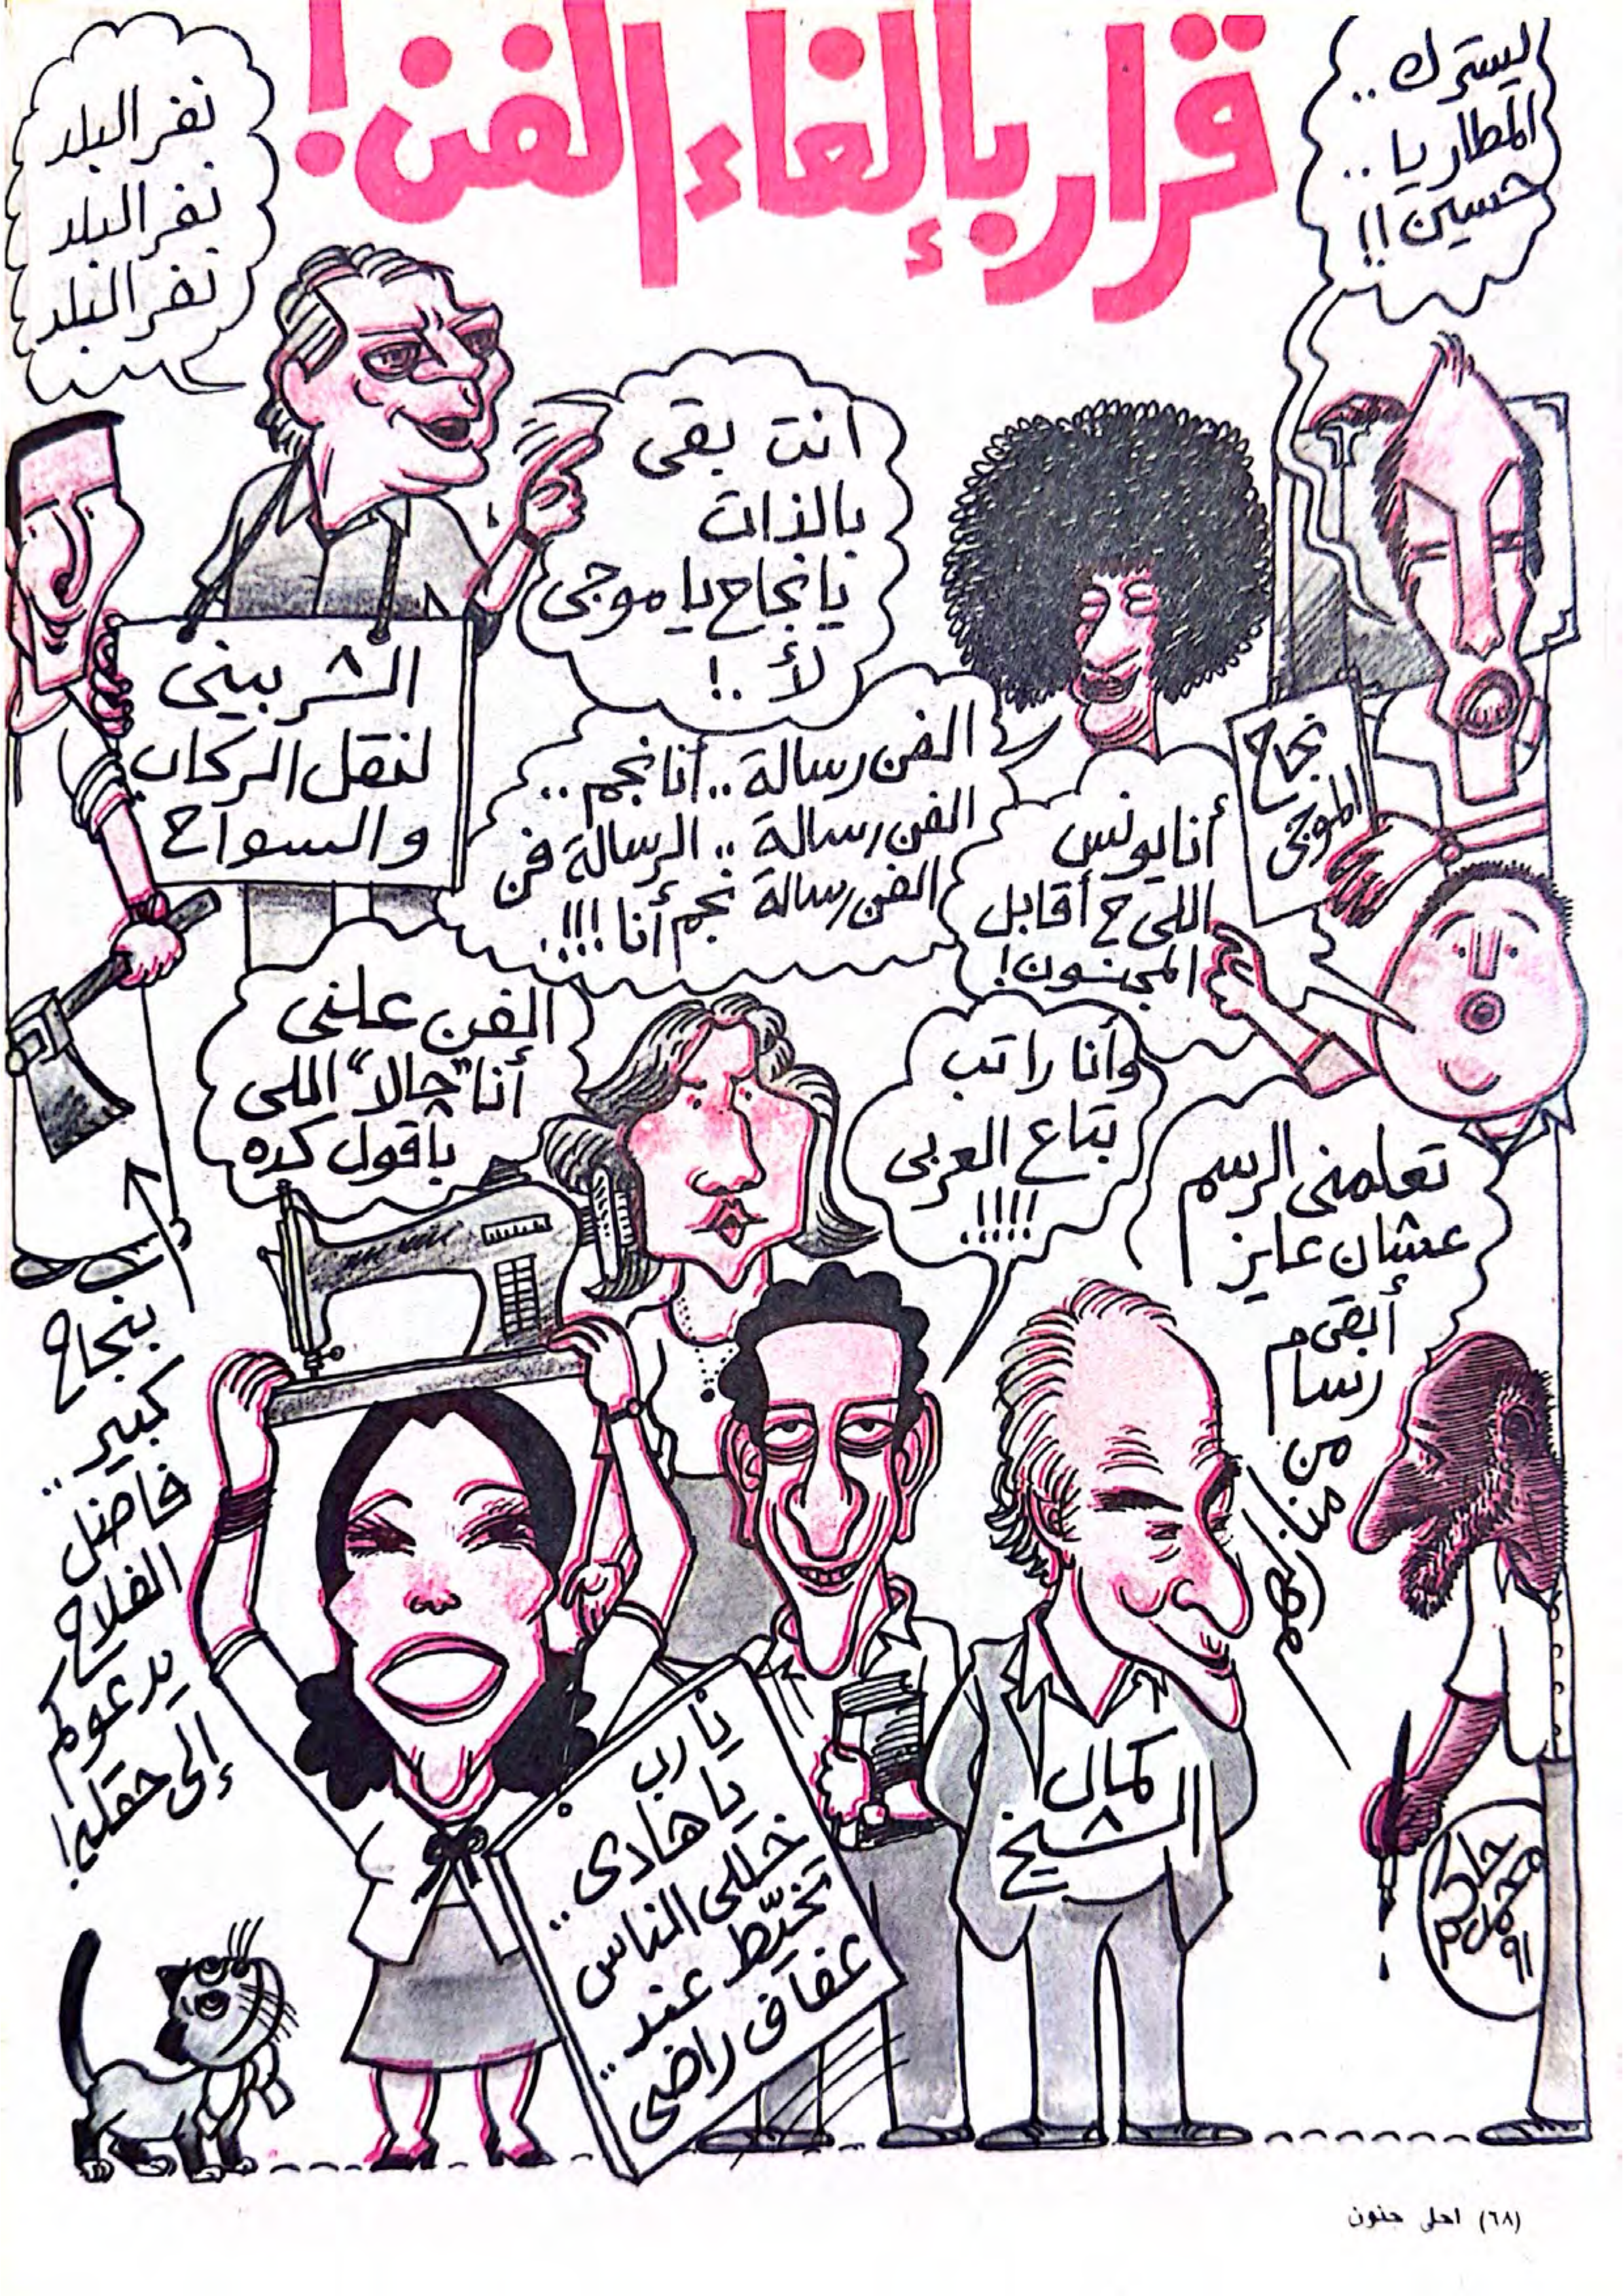 قرار بإلغاء الفن!
ليسترك ..
المطاريا ..
حسين !!
نفر البلد
نفر البلد
نفر البلد
انت بقى
بالذات
يا نجاح يا موجى
لأ ..!
الشربينى
لنقل الركاب
والسواح
الفن رسالة .. أنا نجم ..
الفن رسالة .. الرسالة فن
الفن رسالة نجم أنا !!!.
نجاح
الموجى
أنا يونس
اللى ح أقابل
المجنون!
الفن علنى
أنا "حالا" اللى
بأقول كده
وأنا راتب
بتاع العربى
!!!!.
تعلمنى الرسم
عشان عايز
أبقى م
رسام
من
منازلهم
بنجاح
كبير ..
فاضل
الفلاح
يدعوكم
إلى حقله!
يارب
يا هادى ..
خللى الناس
تخيّط عند ..
عفاف راضى
كمال
الشيخ
محمد
حاكم
٩١
(٦٨) احلى جنون